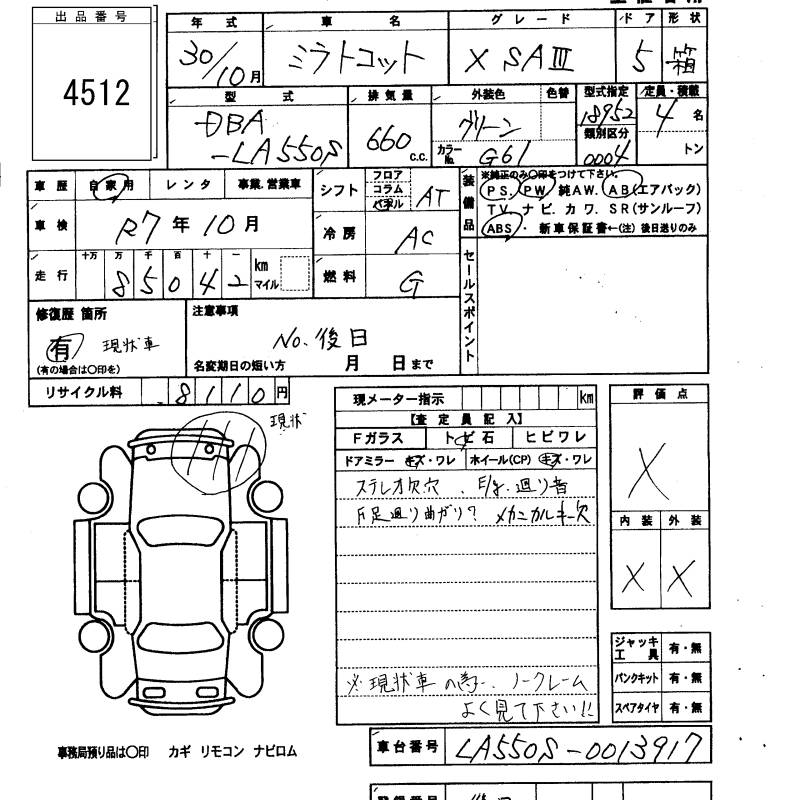 出品番号
4512
年式 車名 グレード ドア 形状
30/10月 ミラトコット X SAIII 5 箱
型式 排気量 外装色 色替 型式指定 定員・積載
DBA-LA550S 660 c.c. グリーン 18952 4 名
カラーNo. G61 類別区分 0004 トン
車歴 自家用 レンタ 事業.営業車
シフト フロア コラム パネル AT
装備品 ※純正のみ〇印をつけて下さい。
PS. PW 純AW. AB(エアバック)
TV ナビ. カワ. SR(サンルーフ)
ABS・ 新車保証書←(注) 後日送りのみ
車検 R7年10月
冷房 AC
走行 十万 万 千 百 十 一
85042 km マイル
燃料 G
セールスポイント
修復歴 箇所
有 現状車
(有の場合は〇印を)
注意事項
No.後日
名変期日の短い方 月 日まで
リサイクル料 8110円
現状
現メーター指示 km
【査定員記入】
Fガラス トビ石 ヒビワレ
ドアミラー キズ・ワレ ホイール(CP) キズ・ワレ
ステレオ欠穴、E/g.廻り音
F足廻り曲がり? メカニカルキー欠
※現状車の為、ノークレーム
よく見て下さい!!
評価点
X
内装 外装
X X
ジャッキ工具 有・無
パンクキット 有・無
スペアタイヤ 有・無
事務局預り品は〇印 カギ リモコン ナビロム
車台番号 LA550S-0013917